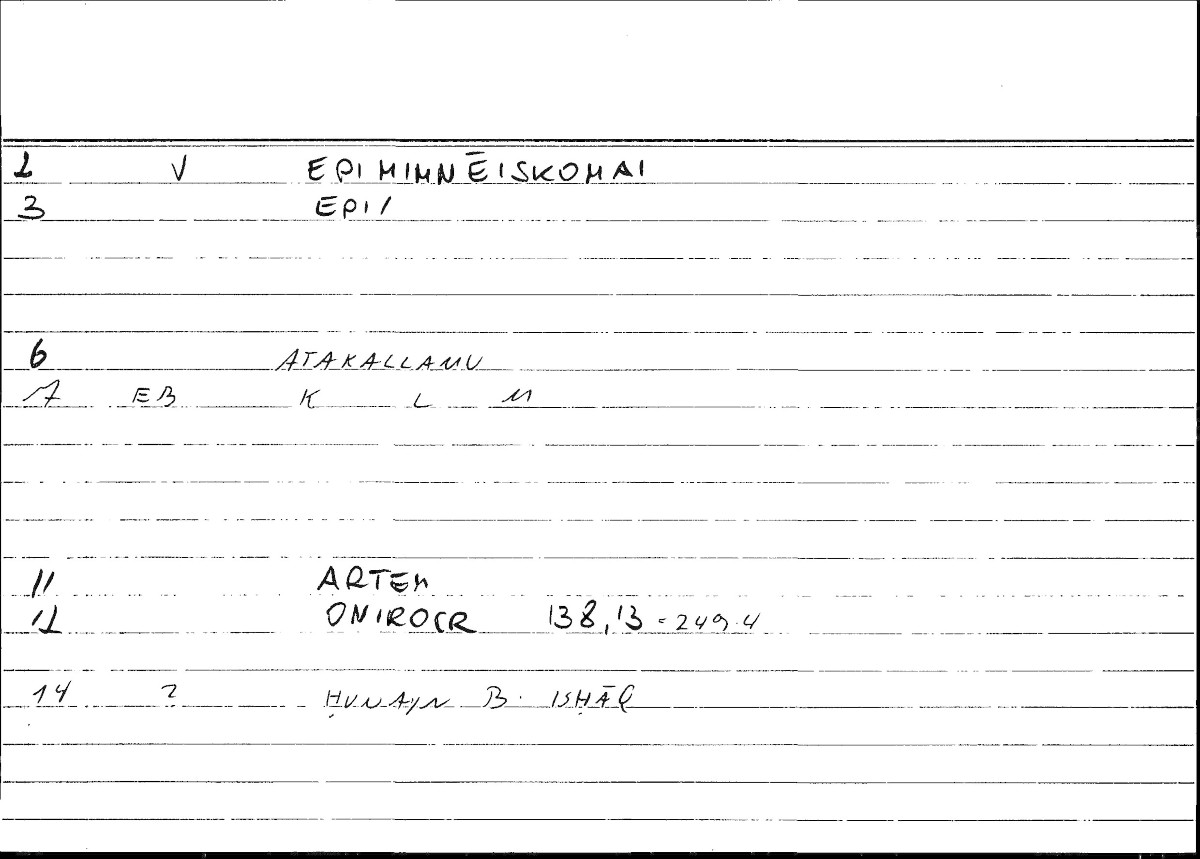 2 V EPIMIMNĒISKOMAI
3 EPI/
6 ATAKALLAMU
7 EB K L M
11 ARTEM
12 ONIROCR 138,13 = 249.4
14 2 ḤUNAYN B. ISḤĀQ